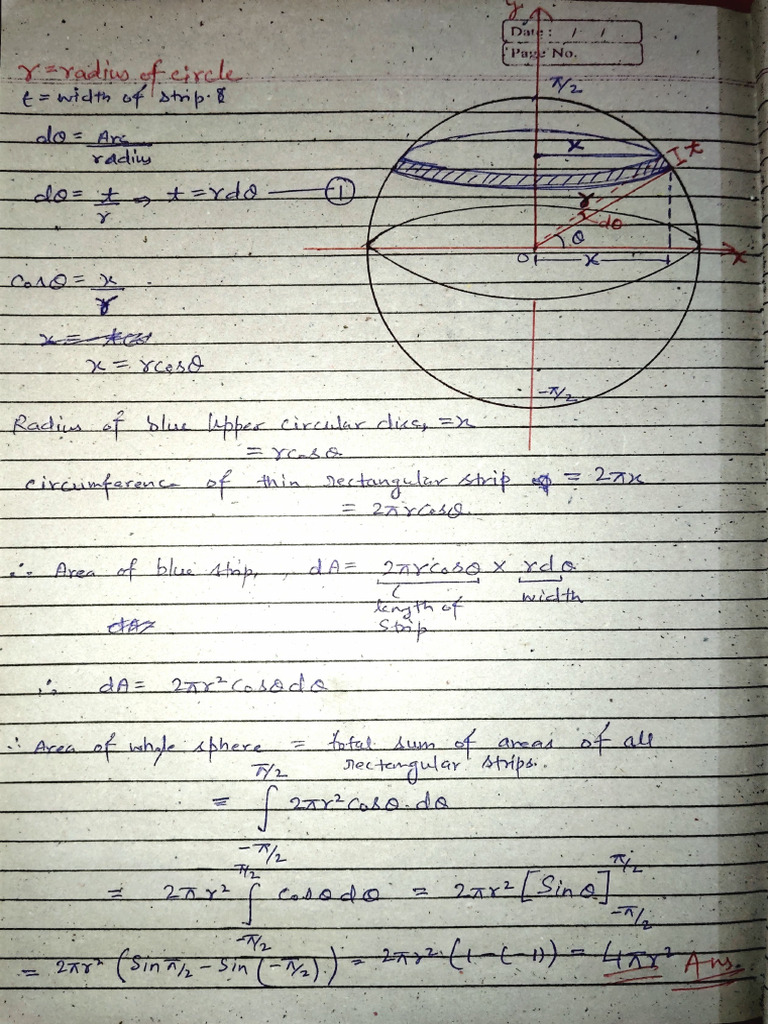 y
Date : / /
Page No.
r = radius of circle
t = width of strip.
π/2
x
t
dθ = Arc/radius
dθ = t/r ⇒ t = rdθ —— ①
r
dθ
θ
O
x
x
cosθ = x/r
x = rcosθ
-π/2
Radius of blue Upper circular disc, = x
= rcosθ
circumference of thin rectangular strip = 2πx
= 2πrcosθ
∴ Area of blue strip, dA = 2πrcosθ × rdθ
length of strip
width
∴ dA = 2πr² cosθdθ
∴ Area of whole sphere = total sum of areas of all
rectangular strips.
= ∫_{-π/2}^{π/2} 2πr² cosθ.dθ
= 2πr² ∫_{-π/2}^{π/2} cosθdθ = 2πr² [Sinθ]_{-π/2}^{π/2}
= 2πr² (Sin π/2 - Sin (-π/2)) = 2πr² (1-(-1)) = 4πr² Ans.